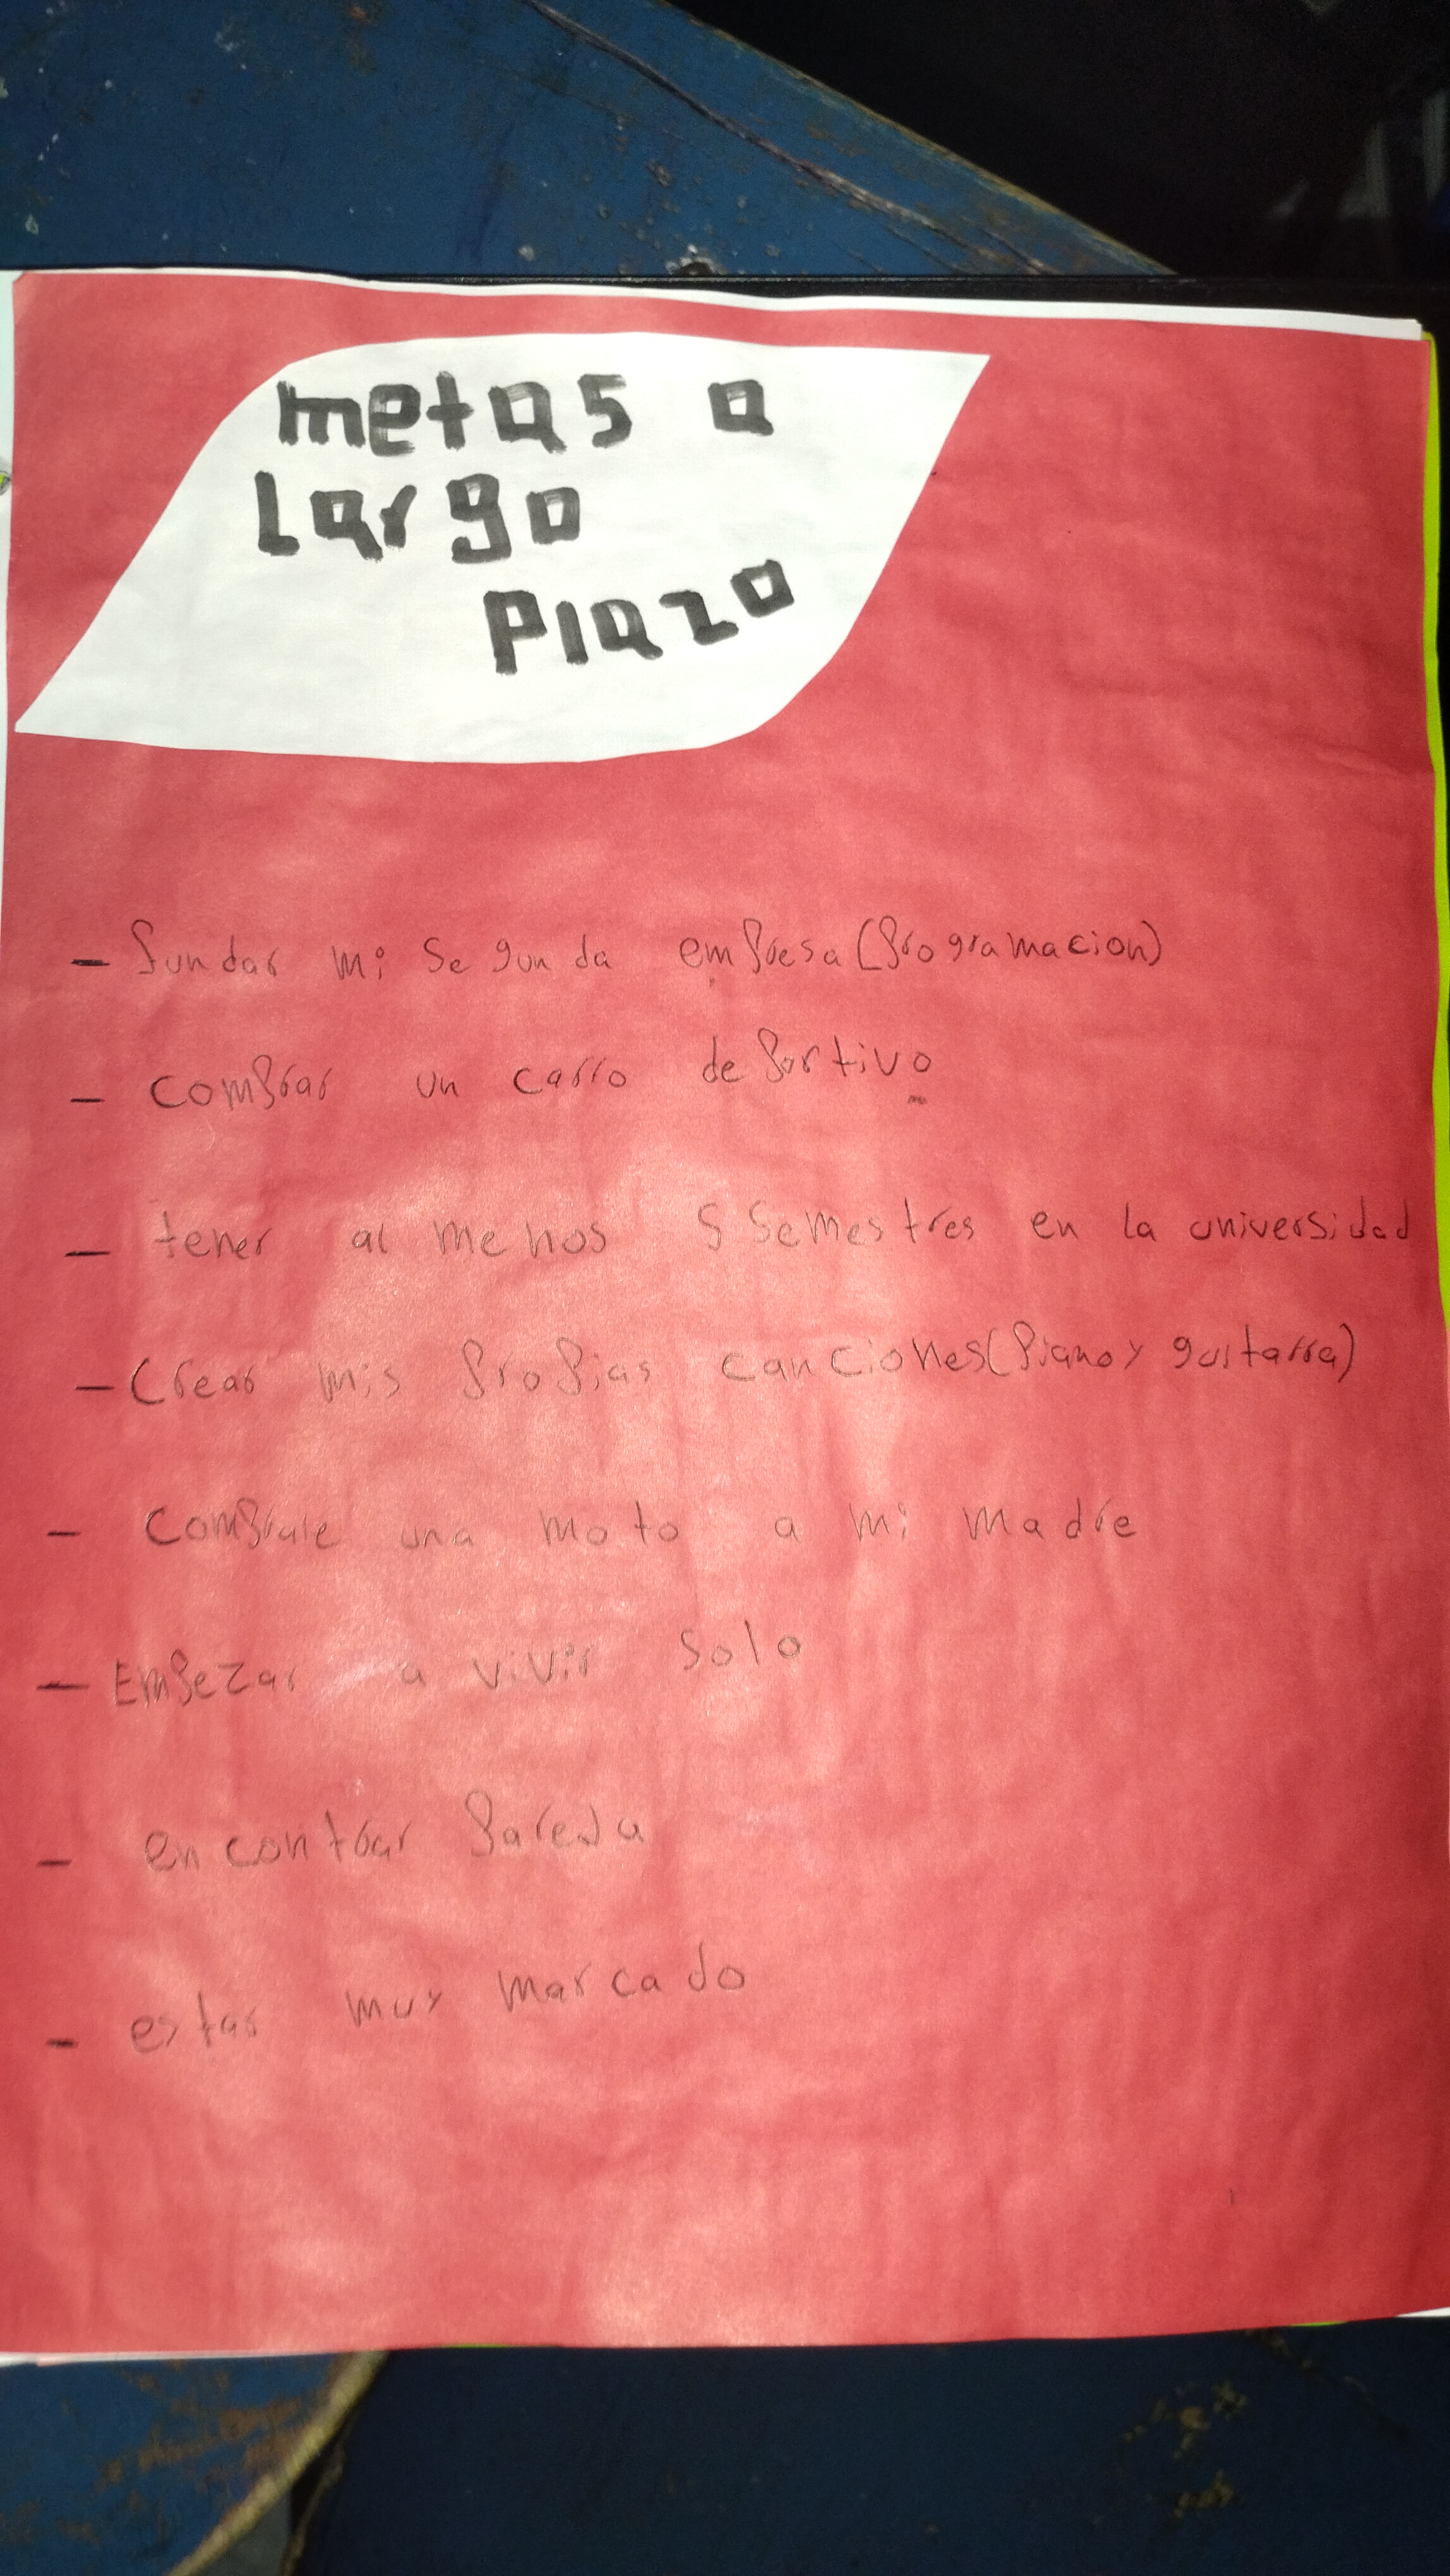 metas a
Largo
Plazo
- fundar mi segunda empresa (programacion)
- comprar un carro deportivo
- tener al menos 5 semestres en la universidad
- Crear mis propias canciones (piano y guitarra)
- comprale una moto a mi madre
- Empezar a vivir solo
- encontrar pareja
- estar muy marcado